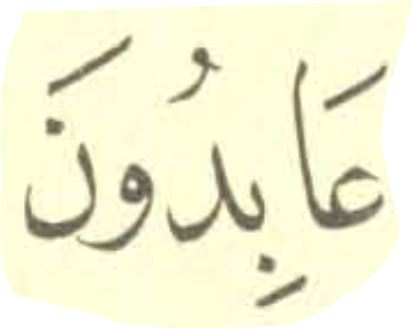 عَابِدُونَ